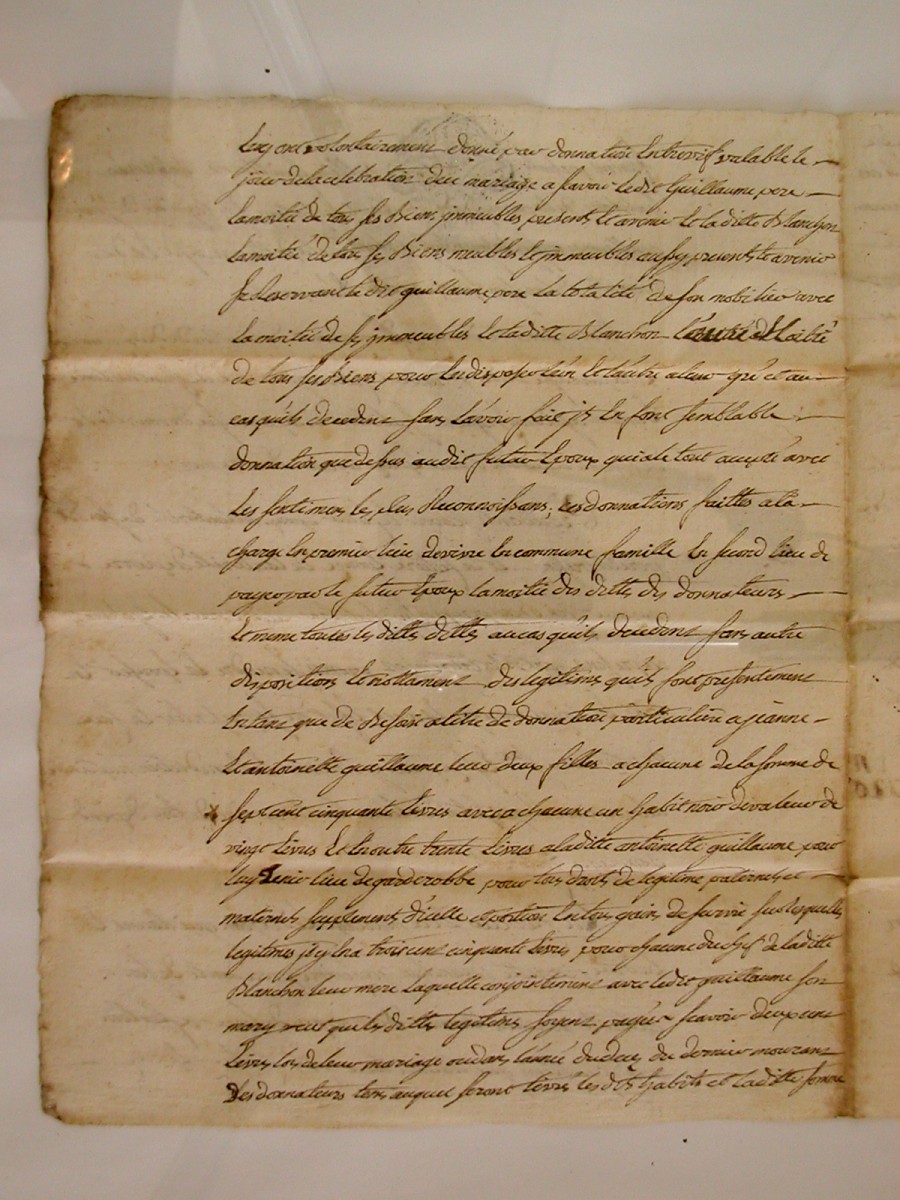 luy ont volontairement donné par donnation Entrevifs valable le
jour de la celebration du mariage a savoir ledit Guillaume pere
la moitié de tous ses Biens jmmeubles presents et avenir et laditte Blanchon
la moitié de tous ses Biens meubles et jmmeubles aussy presents et avenir
se Reservant ledit guillaume pere la totalité de son mobilier avec
la moitié de ses jmmeubles et laditte Blanchon moitié
de tous ses Biens pour En disposer l'un et l'autre a leur gré et au
cas qu'ils decedent sans l'avoir fait jls En font semblable
donnation que dessus audit futur Epoux qui a le tout accepté avec
les sentimens les plus Reconnoissans; ces donnations faittes a la
charge En premier lieu de vivre En commune famille En second lieu de
payer par le futur Epoux la moitié des dettes des donnateurs
et meme toutes les dittes dettes au cas qu'ils decedent sans autre
dispositions et nottament des legitimes qu'ils font presentement
En tant que de Besoin a titre de donnation particuliere a jeanne
Et antoinette guillaume leur deux filles a chacune de la somme de
sept cent cinquante livres avec a chacune un habit noir de valeur de
vingt livres Et En outre trente livres a laditte antoinette guillaume pour
luy tenir lieu de garderobbe pour tous droits de legitime paternels et
maternels supplement d'icelle et portion En tous gains de survie sus lesquelles
legitimes jl y En a trois cent cinquante livres pour chacune du chef de laditte
Blanchon leur mere laquelle conjointement avec ledit guillaume son
mary veut que lesdittes legitimes soyent payées scavoir deux cent
livres lors de leur mariage ou dans l'année du deces du dernier mourant
Des donnateurs tems auquel seront livrés les dts habits et laditte somme